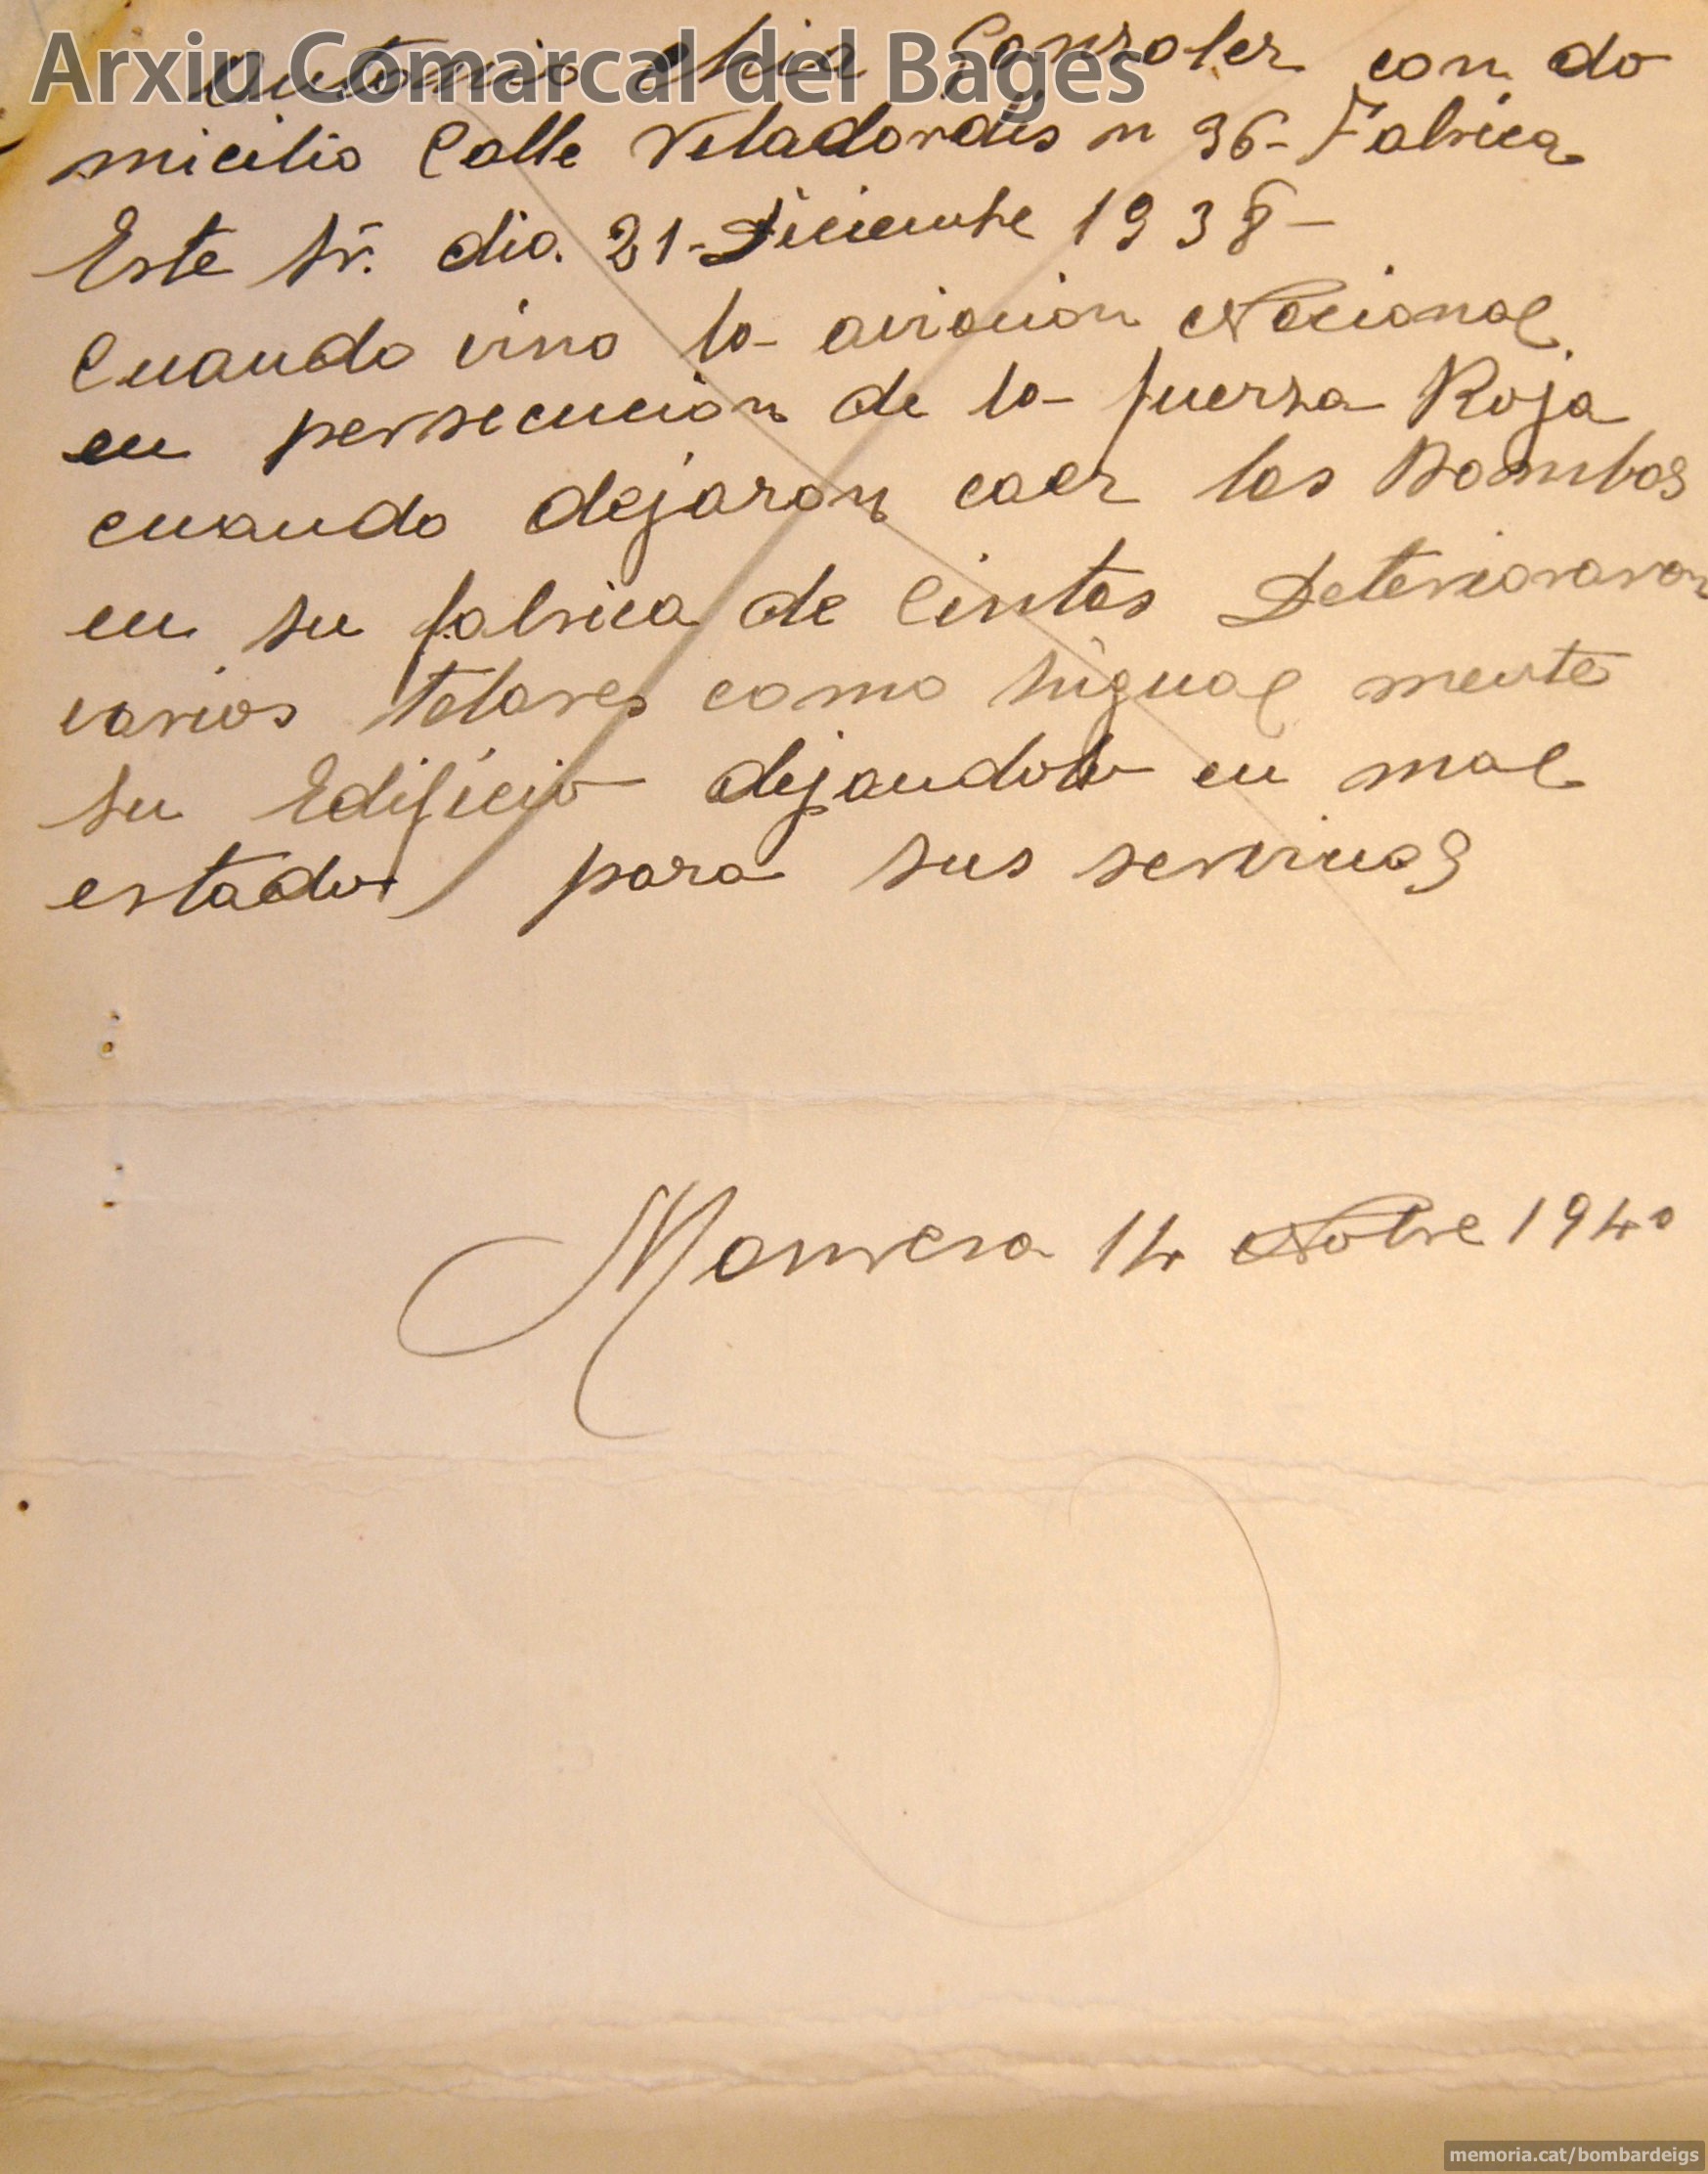 Arxiu Comarcal del Bages
Antonio Chia Gonzalez con do
micilio Calle Viladordis n 36- Fabrica
Este Sr. dia. 21- Diciembre 1938-
Cuando vino la aviacion Nacional
en persecucion de la fuerza Roja
cuando dejaron caer las Bombas
en su fabrica de Cintas Deterioraron
varios telares como higual mente
su Edificio dejandolo en mal
estado para sus servicios
Manresa 14 Nobre 1940
memoria.cat/bombardeigs